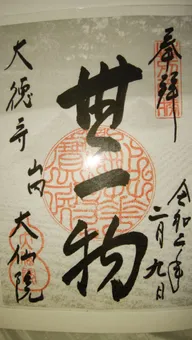 奉拝
令和二年
二月九日
無一物
大徳寺 山内
大仙院